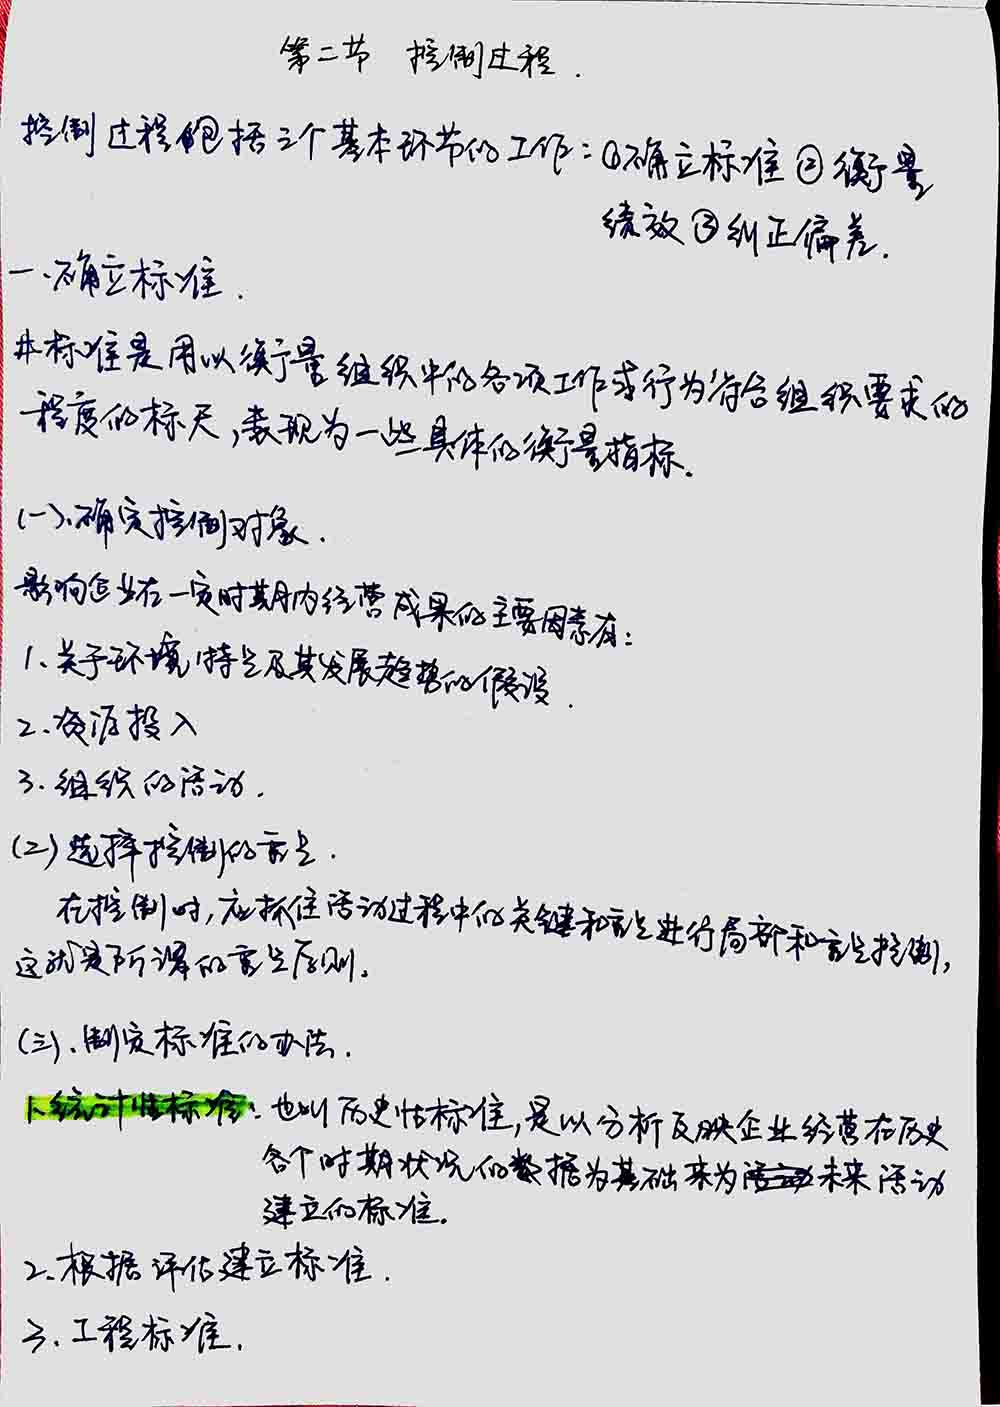 第二节 控制过程.
控制过程包括三个基本环节的工作:①确立标准②衡量
绩效③纠正偏差.
一、确立标准.
#标准是用以衡量组织中的各项工作或行为符合组织要求的
程度的标尺,表现为一些具体的衡量指标.
(一)、确定控制对象.
影响企业在一定时期内经营成果的主要因素有:
1、关于环境特点及其发展趋势的假设.
2、资源投入
3、组织的活动.
(二)选择控制的重点.
在控制时,应抓住活动过程中的关键和重点进行局部和重点控制,
这就是所谓的重点原则。
(三)、制定标准的办法.
1、统计性标准:也叫历史性标准,是以分析反映企业经营在历史
各个时期状况的数据为基础来为未来活动
建立的标准.
2、根据评估建立标准.
3、工程标准.